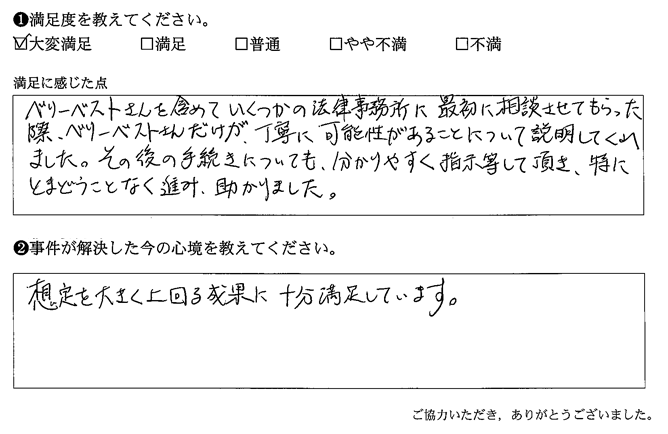 ❶満足度を教えてください。
☑大変満足 □満足 □普通 □やや不満 □不満
満足に感じた点
ベリーベストさんを含めていくつかの法律事務所に最初に相談させてもらった
際、ベリーベストさんだけが、丁寧に可能性があることについて説明してくれ
ました。その後の手続きについても、分かりやすく指示等して頂き、特に
とまどうことなく進み、助かりました。
❷事件が解決した今の心境を教えてください。
想定を大きく上回る成果に十分満足しています。
ご協力いただき，ありがとうございました。